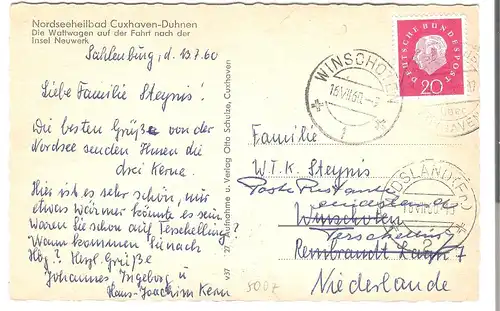 Nordseeheilbad Cuxhaven-Duhnen
Die Wattwagen auf der Fahrt nach der
Insel Neuwerk
Sahlenburg, d. 13.7.60
Liebe Familie Steynis!
Die besten Grüße von der
Nordsee senden Ihnen die
drei Kerne.
Hier ist es sehr schön, nur
etwas wärmer könnte es sein.
Waren Sie schon auf Terschelling?
Wann kommen Sie nach
Hbg? Herzl. Grüße
Johannes, Ingeborg u
Hans-Joachim Kern
v37 27 Aufnahme u. Verlag Otto Schulze, Cuxhaven
5007
WINSCHOTEN
1
DEUTSCHE BUNDESPOST
20
Familie
W.T.K. Steynis
Poste Restante
Winschoten
Terschelling
Rembrandt 7
Niederlande
MIDSLAND
2